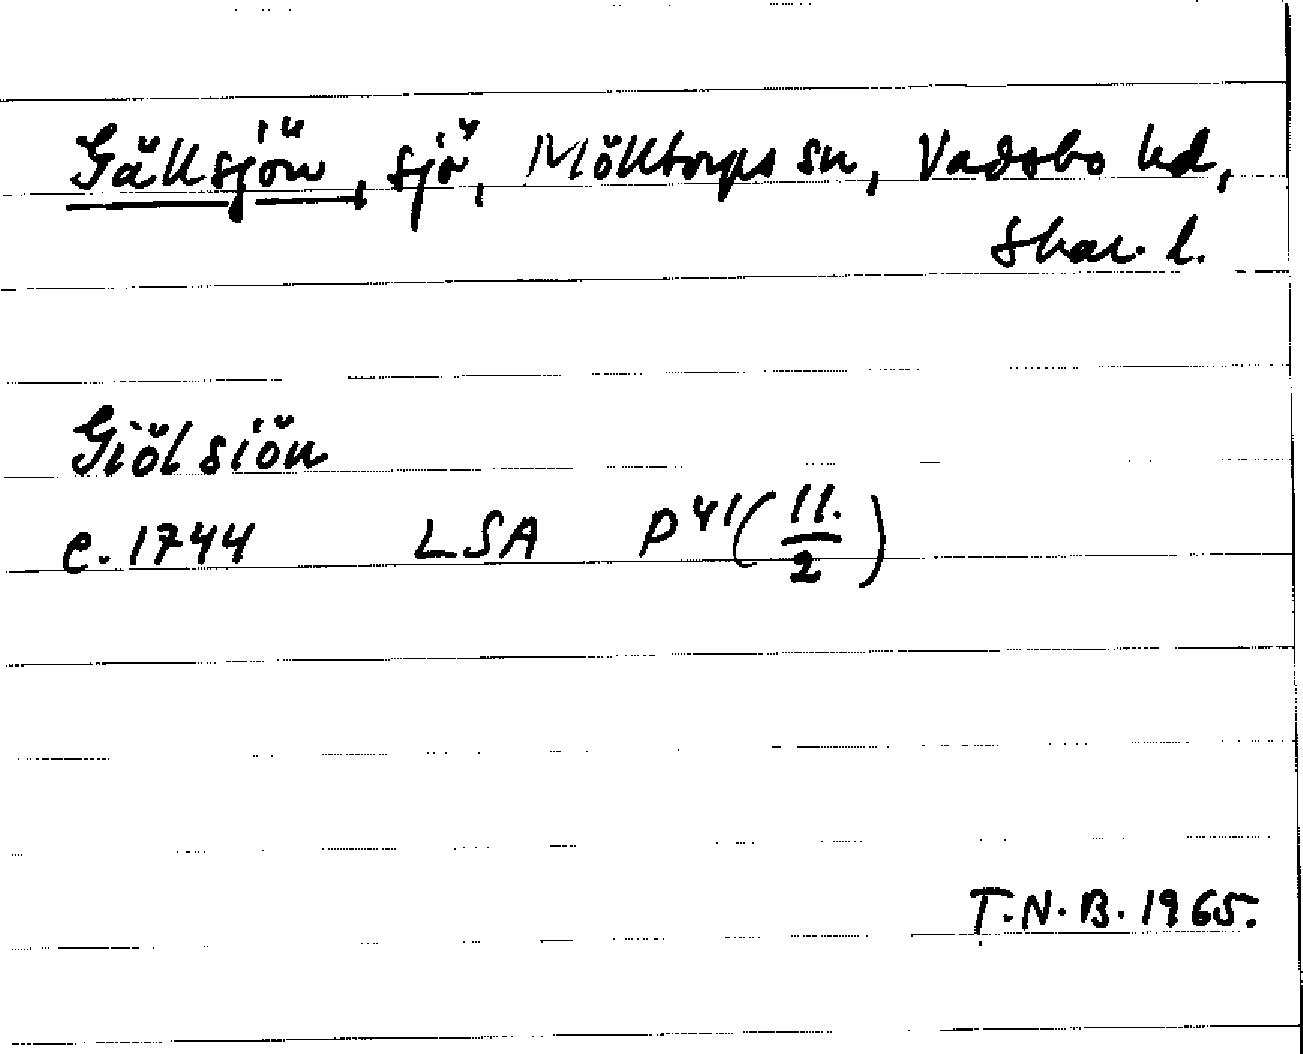 Gällsjön, sjö, Mölltorps sn, Vadsbo hd,
Skar. l.
Giölsiön
c. 1744 LSA P 41 (11./2)
T.N.B. 1965.